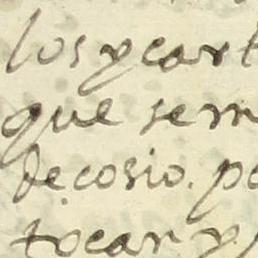 los y cart
que sem
de cosio. po
tocar y